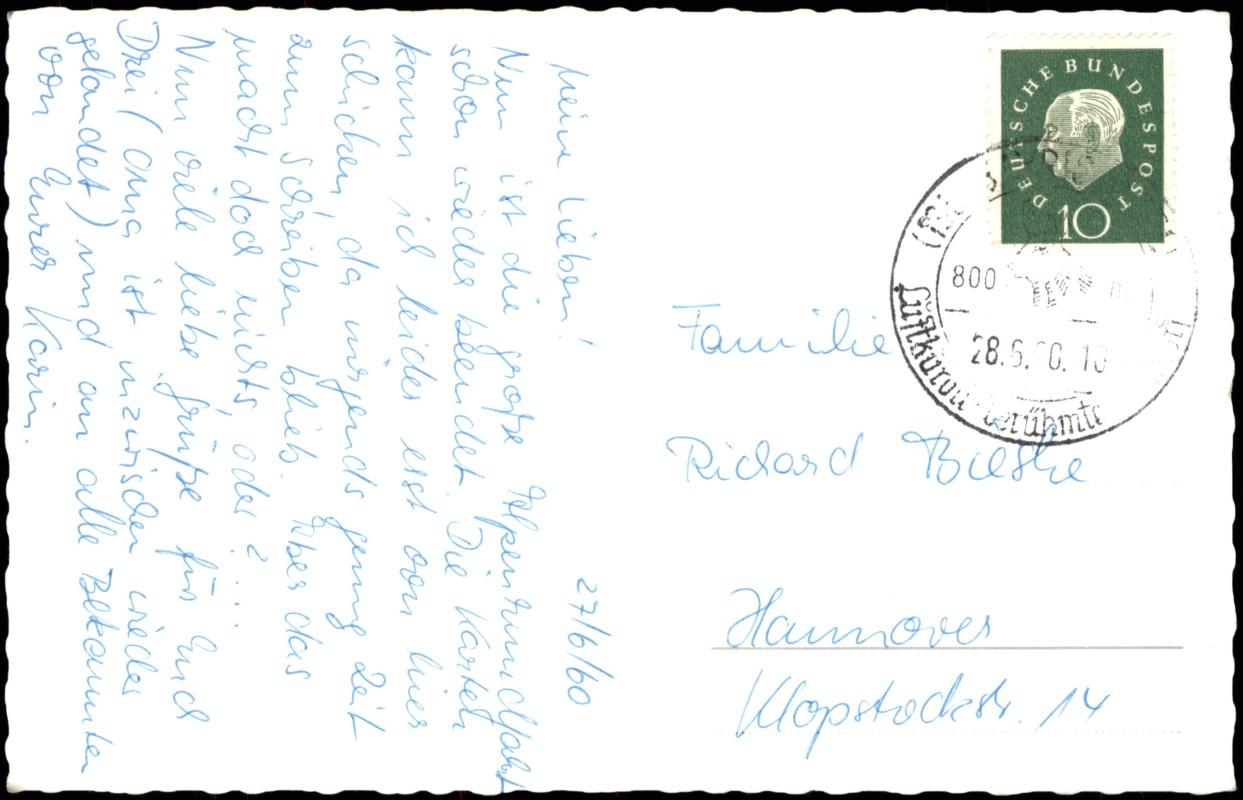 27/6/60
Meine Lieben!
Nun ist die große Alpenrundfahrt
schon wieder beendet. Die Karten
kann ich leider erst von hier
schicken, da nirgends genug Zeit
zum Schreiben blieb. Aber das
macht doch nichts, oder? ...
Nun viele liebe Grüße für Euch
Drei (Oma ist inzwischen wieder
gelandet) und an alle Bekannten
von Eurer Karin.
DEUTSCHE BUNDESPOST
10
800
28.6.60.10
Luftkurort
berühmte
Familie
Richard
Hannover
Klopstockstr. 14